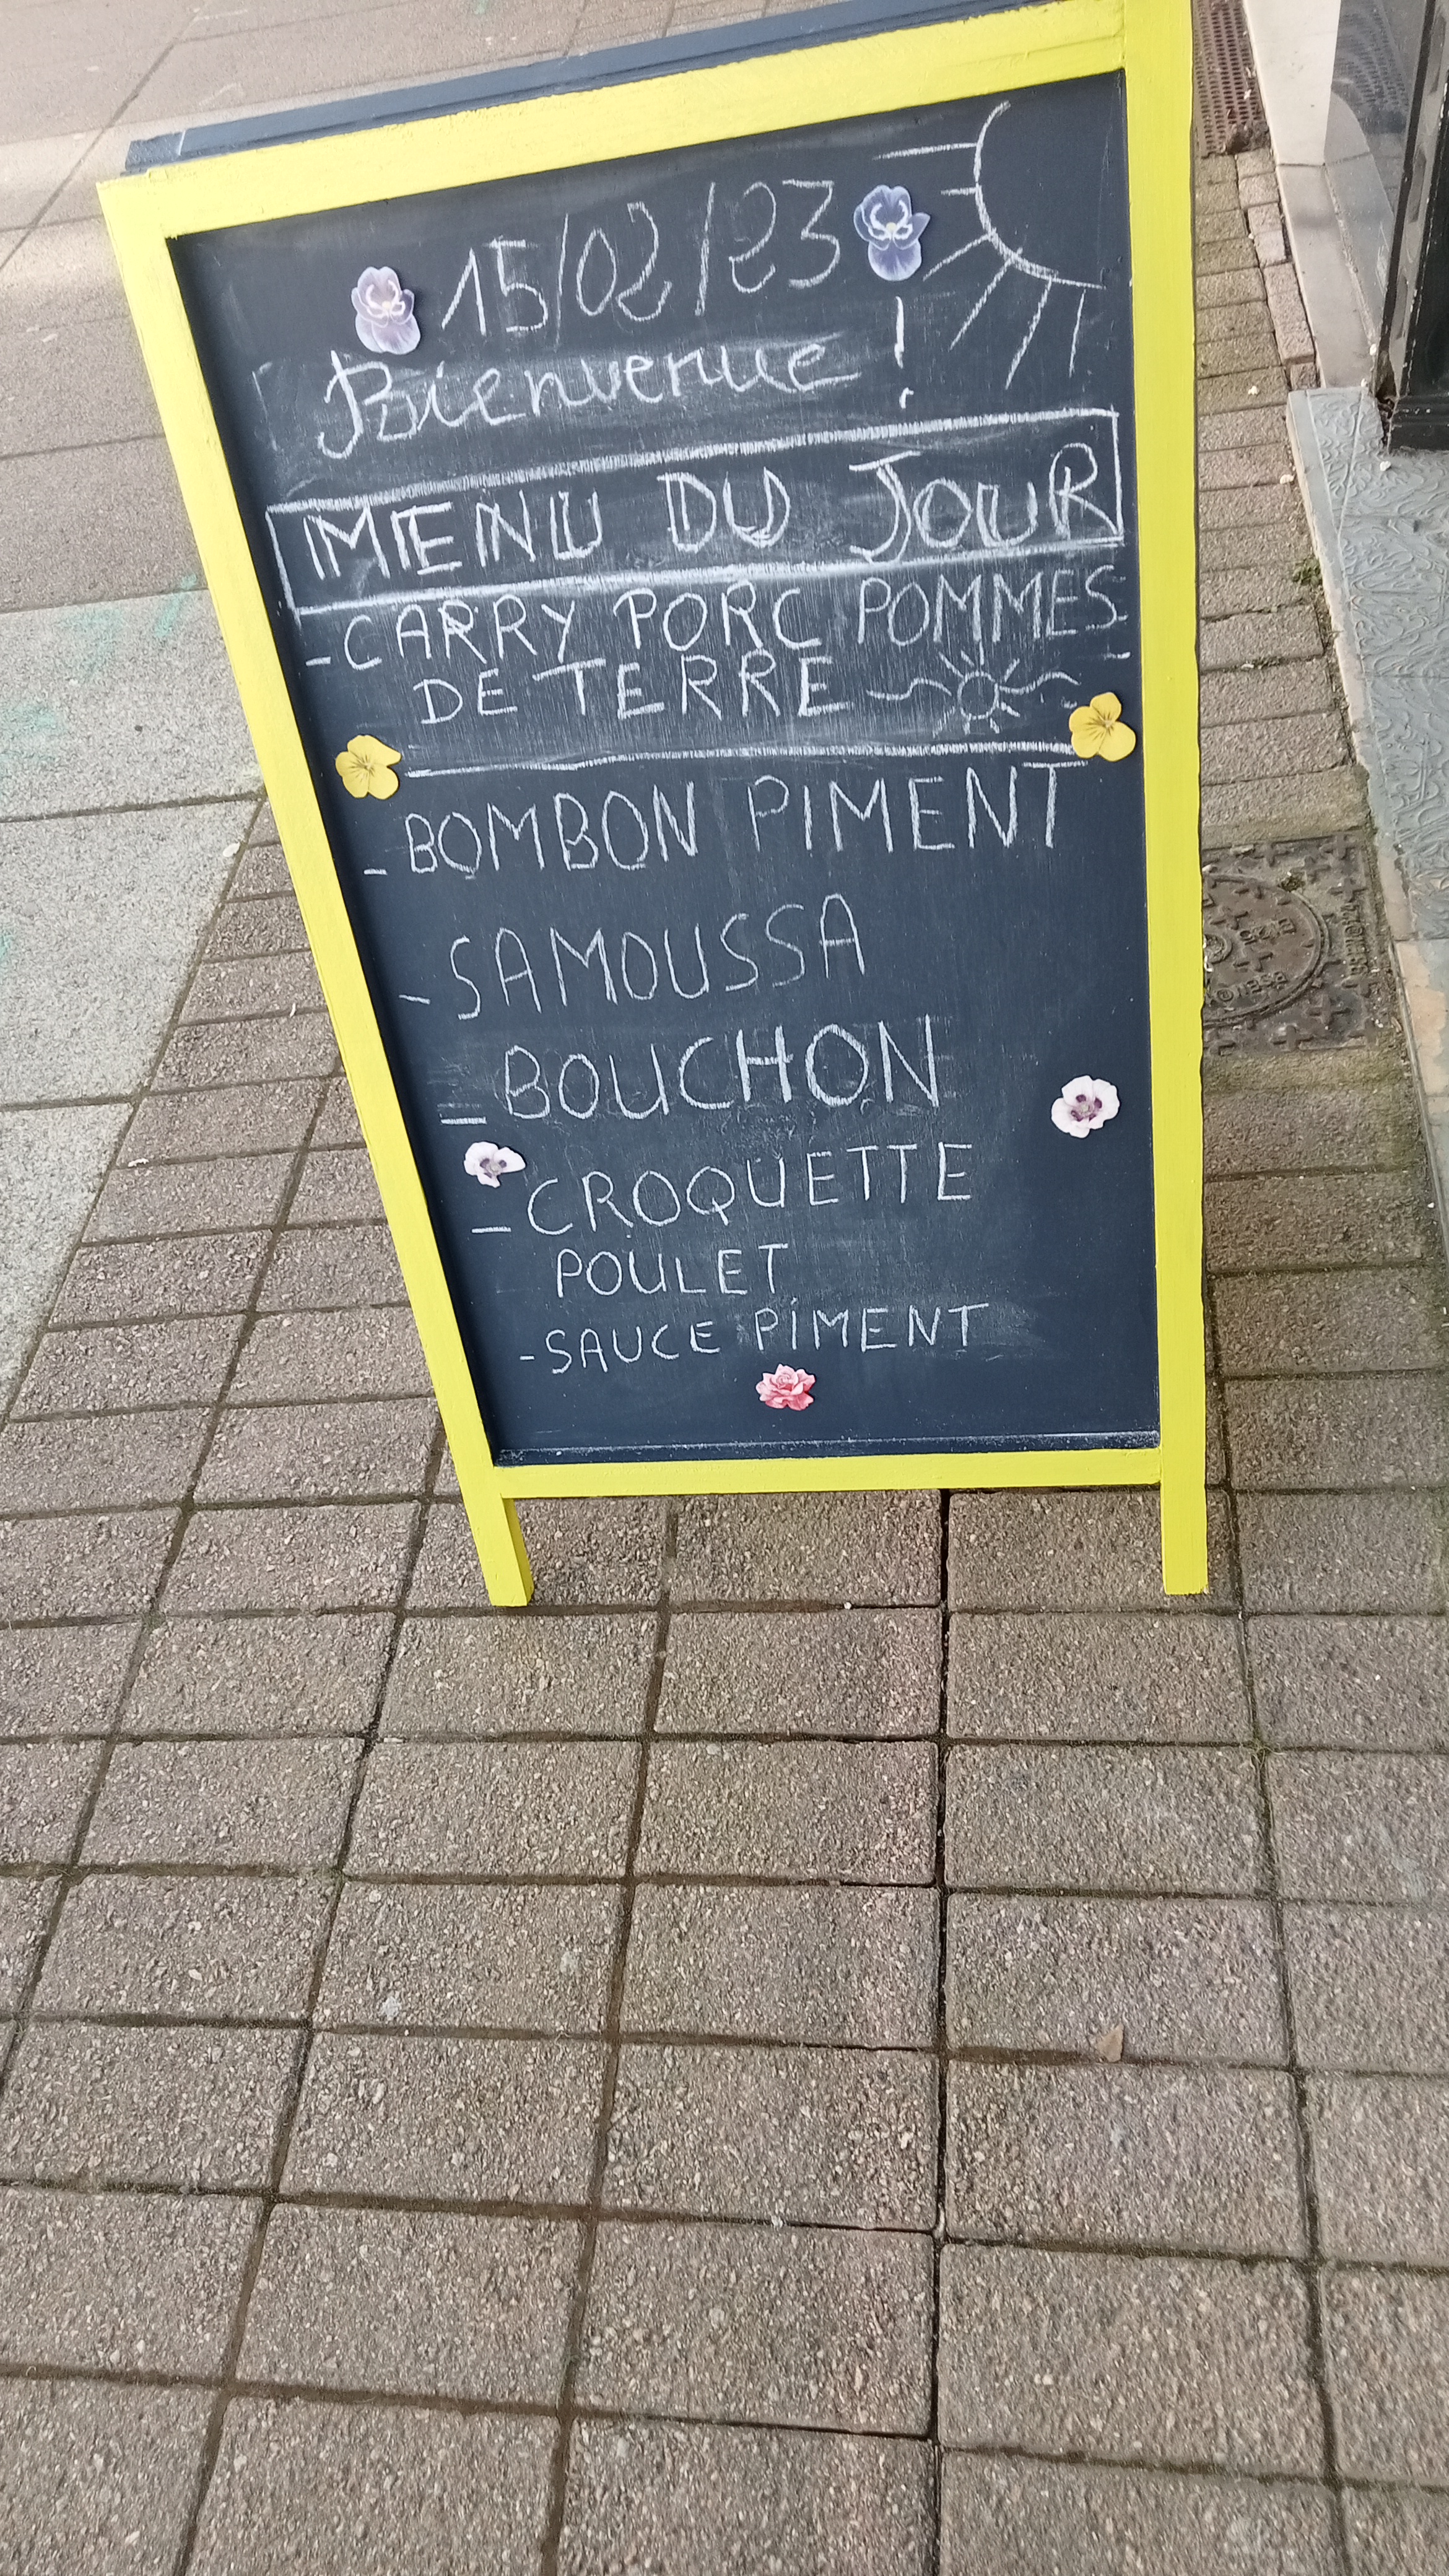 15/02/23
Bienvenue !
MENU DU JOUR
- CARRY PORC POMMES
DE TERRE
- BOMBON PIMENT
- SAMOUSSA
- BOUCHON
- CROQUETTE
POULET
- SAUCE PIMENT